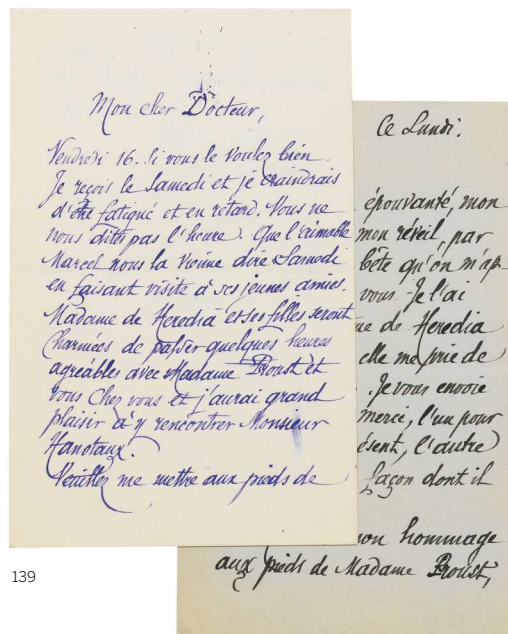 Mon cher Docteur,
Vendredi 16. Si vous le voulez bien.
Je reçois le Samedi et je craindrais
d'être fatigué et en retard. Vous ne
nous dites pas l'heure. Que l'aimable
Marcel nous la vienne dire Samedi
en faisant visite à ses jeunes amies.
Madame de Heredia et ses filles seront
charmées de passer quelques heures
agréables avec Madame Proust et
vous chez vous et j'aurai grand
plaisir à y rencontrer Monsieur
Hanotaux.
Veuillez me mettre aux pieds de
Ce Lundi.
épouvanté, mon
mon réveil, par
bête qu'on m'ap-
vous. Je l'ai
de Heredia
elle me prie de
. Je vous envoie
merci, l'un pour
ésent, l'autre
façon dont il
mon hommage
aux pieds de Madame Proust,
139